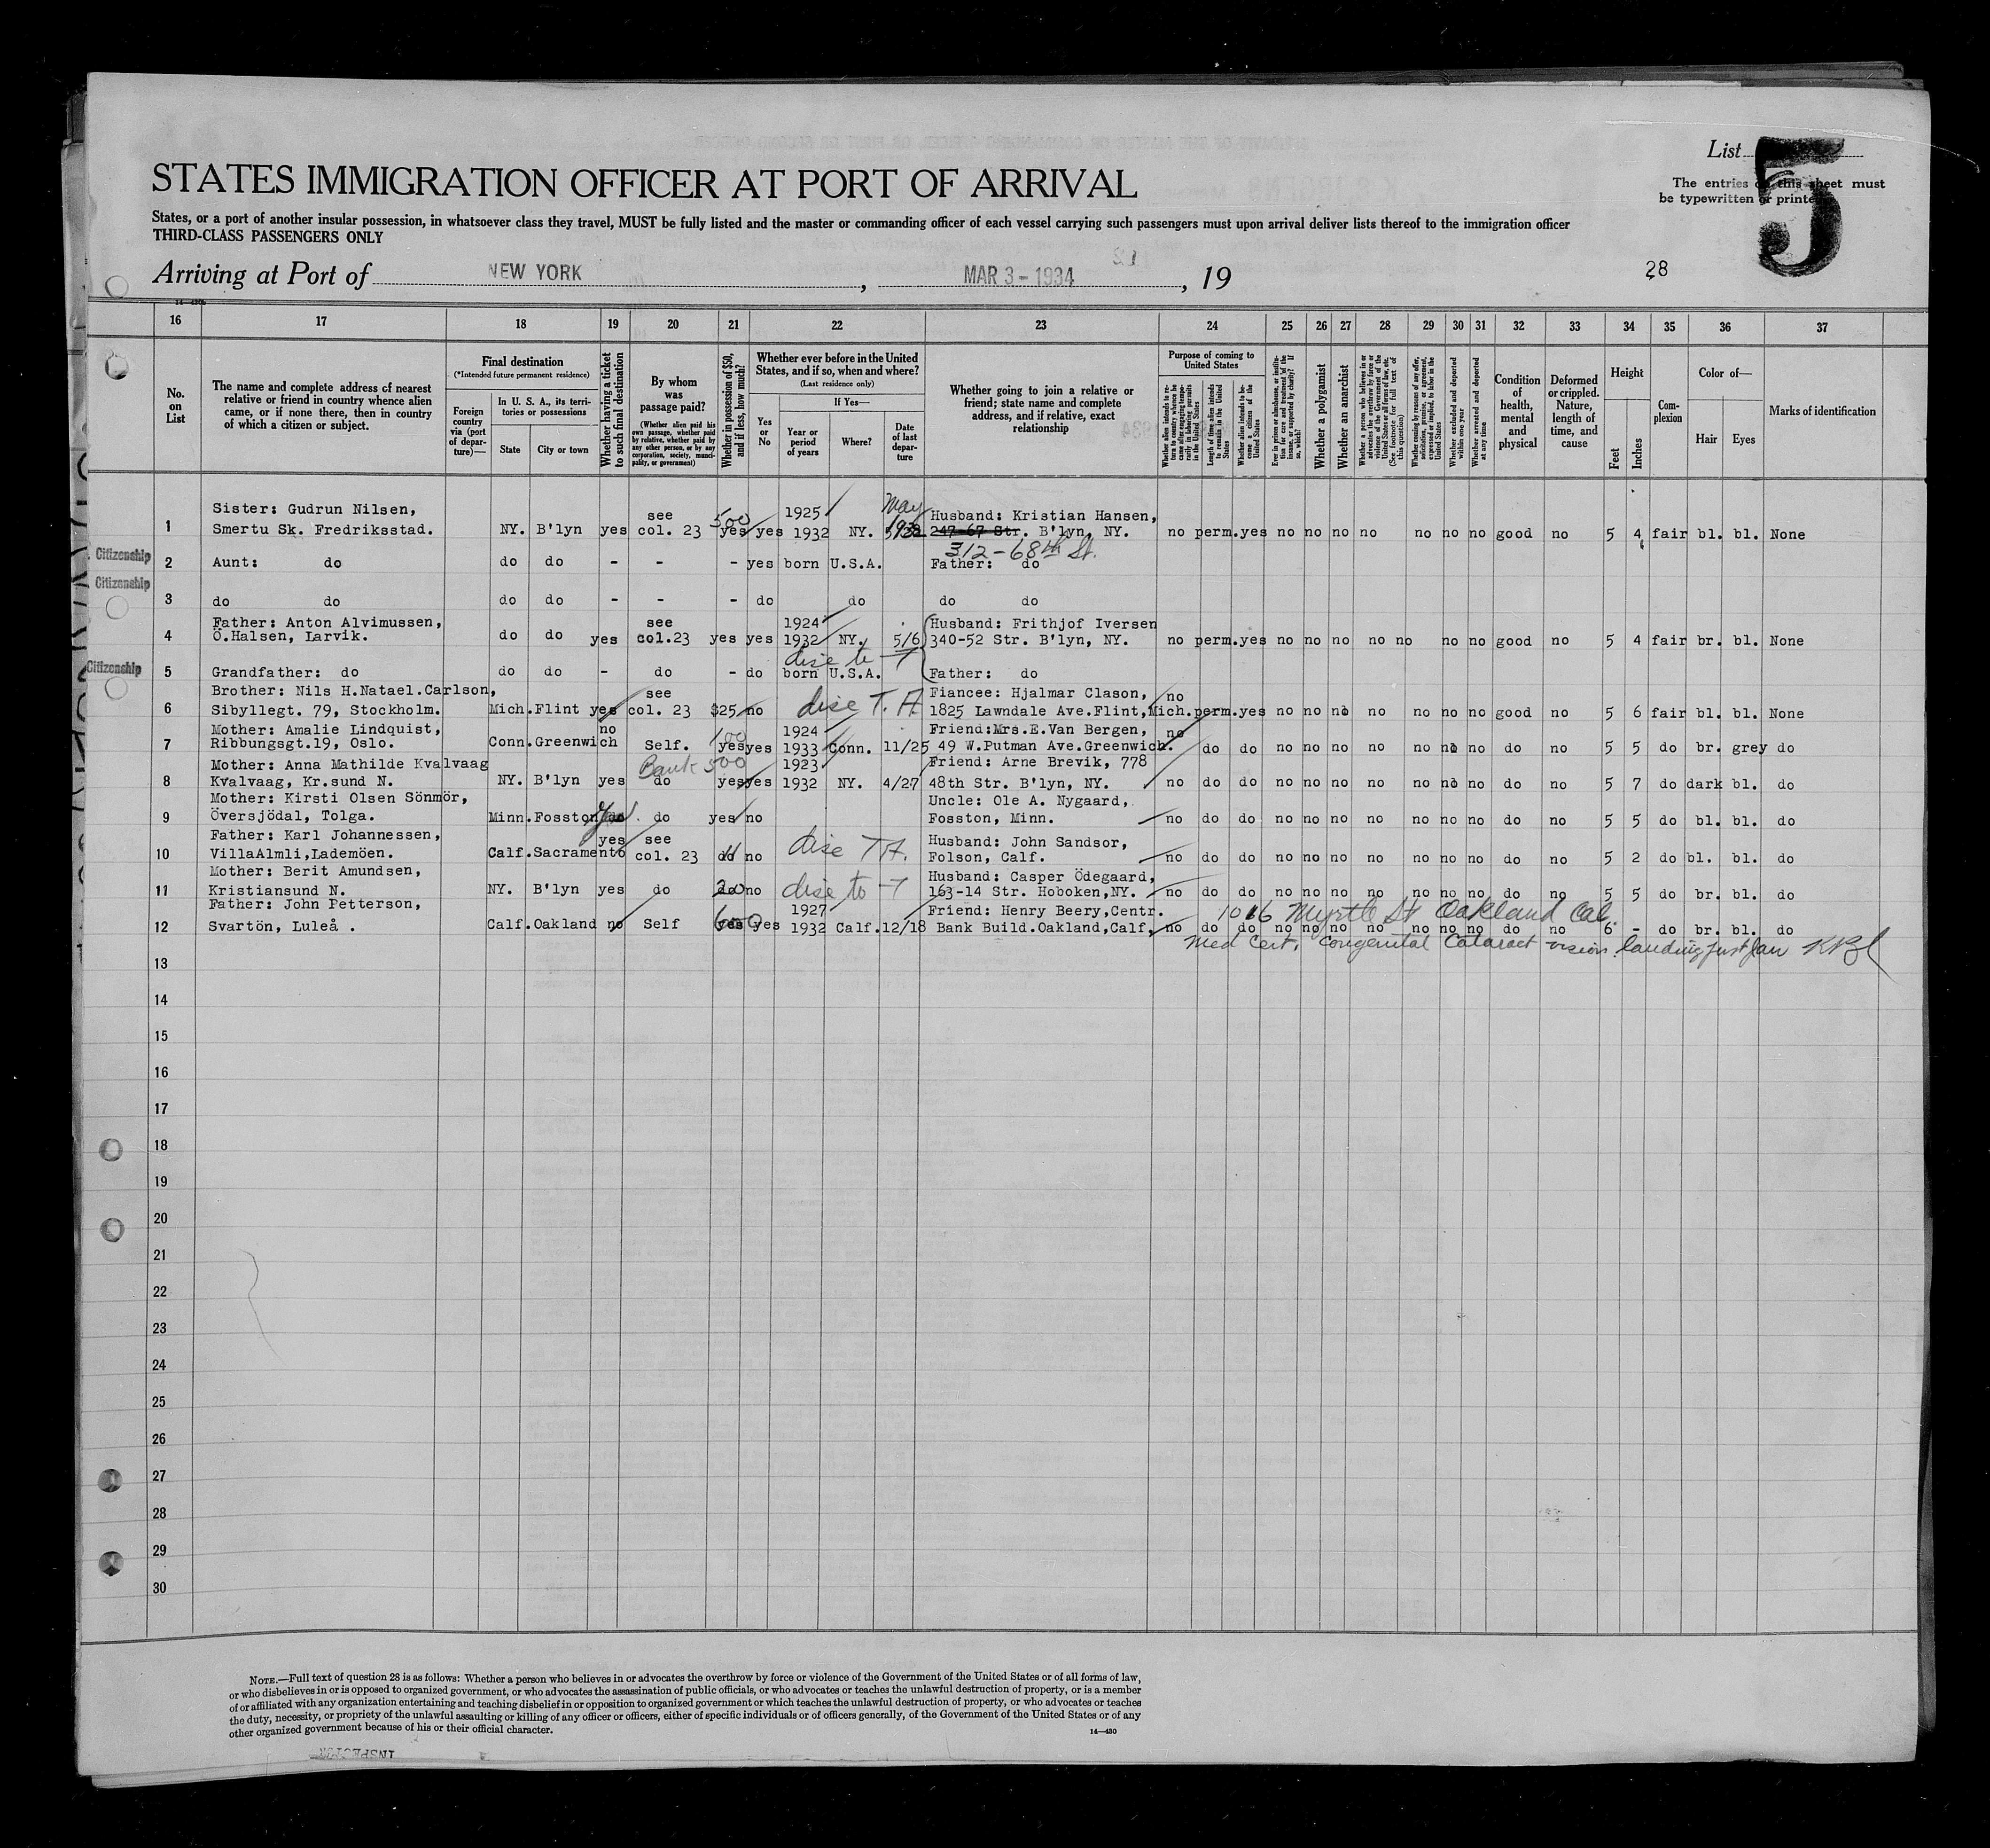 List 5
STATES IMMIGRATION OFFICER AT PORT OF ARRIVAL
The entries on this sheet must
be typewritten or printed
States, or a port of another insular possession, in whatsoever class they travel, MUST be fully listed and the master or commanding officer of each vessel carrying such passengers must upon arrival deliver lists thereof to the immigration officer
THIRD-CLASS PASSENGERS ONLY
Arriving at Port of NEW YORK, MAR 3 - 1934, 19
28
14-430
16 17 18 19 20 21 22 23 24 25 26 27 28 29 30 31 32 33 34 35 36 37
No. on List
The name and complete address of nearest relative or friend in country whence alien came, or if none there, then in country of which a citizen or subject.
Final destination
(*Intended future permanent residence)
Foreign country via (port of departure)—
In U. S. A., its territories or possessions
State
City or town
Whether having a ticket to such final destination
By whom was passage paid?
(Whether alien paid his own passage, whether paid by relative, whether paid by any other person, or by any corporation, society, municipality, or government)
Whether in possession of $50, and if less, how much?
Whether ever before in the United States, and if so, when and where?
(Last residence only)
Yes or No
If Yes—
Year or period of years
Where?
Date of last departure
Whether going to join a relative or friend; state name and complete address, and if relative, exact relationship
Purpose of coming to United States
Whether alien intends to return to country whence he came after engaging temporarily in laboring pursuits in the United States
Length of time alien intends to remain in the United States
Whether alien intends to become a citizen of the United States
Ever in prison or almshouse, or institution for care and treatment of the insane, or supported by charity? If so, which?
Whether a polygamist
Whether an anarchist
Whether a person who believes in or advocates the overthrow by force or violence of the Government of the United States or all forms of law, etc. (See footnote for full text of this question)
Whether coming by reason of any offer, solicitation, promise, or agreement, expressed or implied, to labor in the United States
Whether excluded and deported within one year
Whether arrested and deported at any time
Condition of health, mental and physical
Deformed or crippled. Nature, length of time, and cause
Height
Feet
Inches
Complexion
Color of—
Hair
Eyes
Marks of identification
Sister: Gudrun Nilsen, see 500 1925 May Husband: Kristian Hansen,
1 Smertu Sk. Fredriksstad. NY. B'lyn yes col. 23 yes yes 1932 NY. 1932 247-67 Str. B'lyn, NY. no perm. yes no no no no no no no good no 5 4 fair bl. bl. None
312-68th St.
Citizenship
2 Aunt: do do do - - - yes born U.S.A. Father: do
Citizenship
3 do do do do - - - do do do do
Father: Anton Alvimussen, see 1924 Husband: Frithjof Iversen
4 Ö.Halsen, Larvik. do do yes col.23 yes yes 1932 NY. 5/6 340-52 Str. B'lyn, NY. no perm. yes no no no no no no no good no 5 4 fair br. bl. None
disc to T
Citizenship
5 Grandfather: do do do - do - do born U.S.A. Father: do
Brother: Nils H.Natael.Carlson, see Fiancee: Hjalmar Clason, no
6 Sibyllegt. 79, Stockholm. Mich. Flint yes col. 23 $25 no disc T. A. 1825 Lawndale Ave.Flint,Mich. perm. yes no no no no no no no good no 5 6 fair bl. bl. None
Mother: Amalie Lindquist, no 100 1924 Friend:Mrs.E.Van Bergen, no
7 Ribbungsgt.19, Oslo. Conn. Greenwich Self. yes yes 1933 Conn. 11/25 49 W.Putman Ave.Greenwich. do do no no no no no no no do no 5 5 do br. grey do
Mother: Anna Mathilde Kvalvaag Bank 500 1923 Friend: Arne Brevik, 778
8 Kvalvaag, Kr.sund N. NY. B'lyn yes do yes yes 1932 NY. 4/27 48th Str. B'lyn, NY. no do do no no no no no no no do no 5 7 do dark bl. do
Mother: Kirsti Olsen Sönmör, Uncle: Ole A. Nygaard,
9 Översjödal, Tolga. Minn. Fosston do do yes no Fosston, Minn. no do do no no no no no no no do no 5 5 do bl. bl. do
Father: Karl Johannessen, yes see Husband: John Sandsor,
10 VillaAlmli,Lademöen. Calf. Sacramento col. 23 do no disc T.A. Folson, Calf. no do do no no no no no no no do no 5 2 do bl. bl. do
Mother: Berit Amundsen, Husband: Casper Ödegaard,
11 Kristiansund N. NY. B'lyn yes do 20 no disc to T 163-14 Str. Hoboken,NY. no do do no no no no no no no do no 5 5 do br. bl. do
Father: John Petterson, 600 1927 Friend: Henry Beery,Centr. 1016 Myrtle St Oakland Cal.
12 Svartön, Luleå . Calf. Oakland no Self yes yes 1932 Calf. 12/18 Bank Build.Oakland,Calf. no do do no no no no no no no do no 6 - do br. bl. do
Med Cert. Congenital Cataract vision.
13
14
15
16
17
18
19
20
21
22
23
24
25
26
27
28
29
30
NOTE.—Full text of question 28 is as follows: Whether a person who believes in or advocates the overthrow by force or violence of the Government of the United States or of all forms of law,
or who disbelieves in or is opposed to organized government, or who advocates the assassination of public officials, or who advocates or teaches the unlawful destruction of property, or is a member
of or affiliated with any organization entertaining and teaching disbelief in or opposition to organized government or which teaches the unlawful destruction of property, or who advocates or teaches
the duty, necessity, or propriety of the unlawful assaulting or killing of any officer or officers, either of specific individuals or of officers generally, of the Government of the United States or of any
other organized government because of his or their official character.
14—430